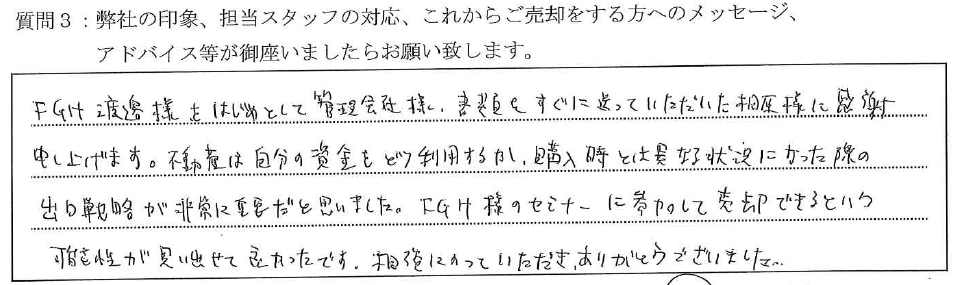 質問３：弊社の印象、担当スタッフの対応、これからご売却をする方へのメッセージ、
アドバイス等が御座いましたらお願い致します。
FGH 渡邊様をはじめとして管理会社様、書類をすぐに送っていただいた相原様に感謝
申し上げます。不動産は自分の資金をどう利用するか、購入時とは異なる状況になった際の
出口戦略が非常に重要だと思いました。FGH様のセミナーに参加して売却できるという
可能性が見い出せて良かったです。相談にのっていただき、ありがとうございました。